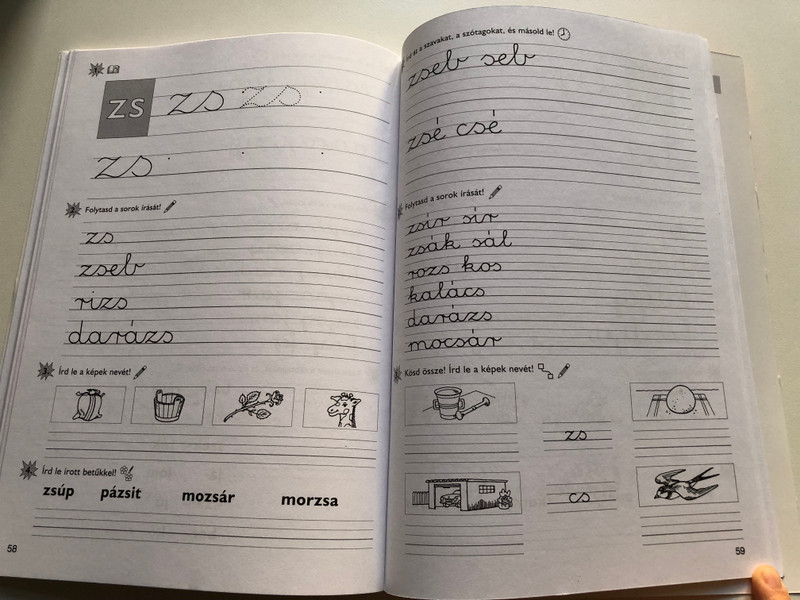 1
zs zs zs
zs
2 Folytasd a sorok írását!
zs
zseb
rizs
darázs
3 Írd le a képek nevét!
4 Írd le írott betűkkel!
zsúp pázsit mozsár morzsa
58
Írd át a szavakat, a szótagokat, és másold le!
zseb seb
zsé csé
Folytasd a sorok írását!
zsír sír
zsák sál
rozs kos
kalács
darázs
mocsár
Kösd össze! Írd le a képek nevét!
zs
cs
59